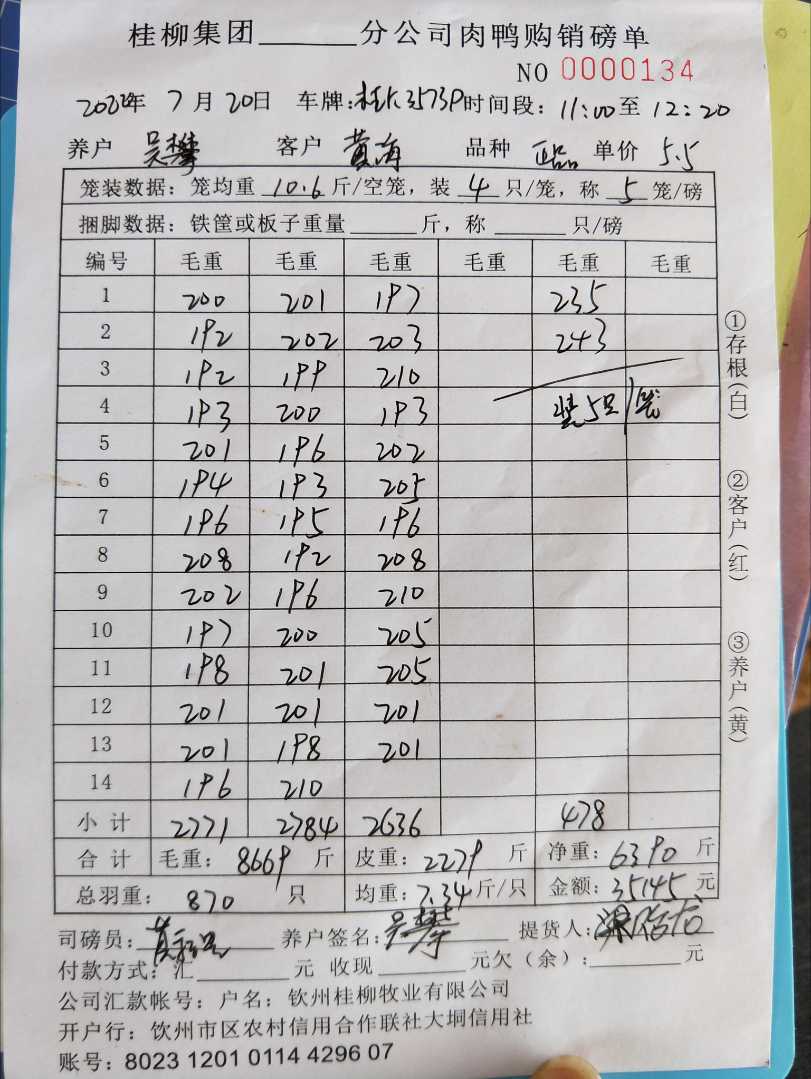 桂柳集团______分公司肉鸭购销磅单
NO 0000134
2022年 7月20日 车牌:桂K35739 时间段:11:00至12:20
养户 吴攀 客户 黄海 品种 正品 单价 5.5
笼装数据:笼均重 10.6 斤/空笼,装 4 只/笼,称 5 笼/磅
捆脚数据:铁筐或板子重量______斤,称______只/磅
编号 毛重 毛重 毛重 毛重 毛重 毛重
1 200 201 197 235
2 192 202 203 243
3 192 199 210
4 193 200 193 装5只/笼
5 201 196 202
6 194 193 205
7 196 195 196
8 208 192 208
9 202 196 210
10 197 200 205
11 198 201 205
12 201 201 201
13 201 198 201
14 196 210
小计 2771 2784 2636 478
合计 毛重:8669斤 皮重:2279斤 净重:6390斤
总羽重:870只 均重:7.34斤/只 金额:35145元
司磅员: 养户签名:吴攀 提货人:
付款方式:汇______元 收现______元欠(余):______元
公司汇款帐号:户名:钦州桂柳牧业有限公司
开户行:饮州市区农村信用合作联社大垌信用社
账号:8023 1201 0114 4296 07
①存根(白)
②客户(红)
③养户(黄)